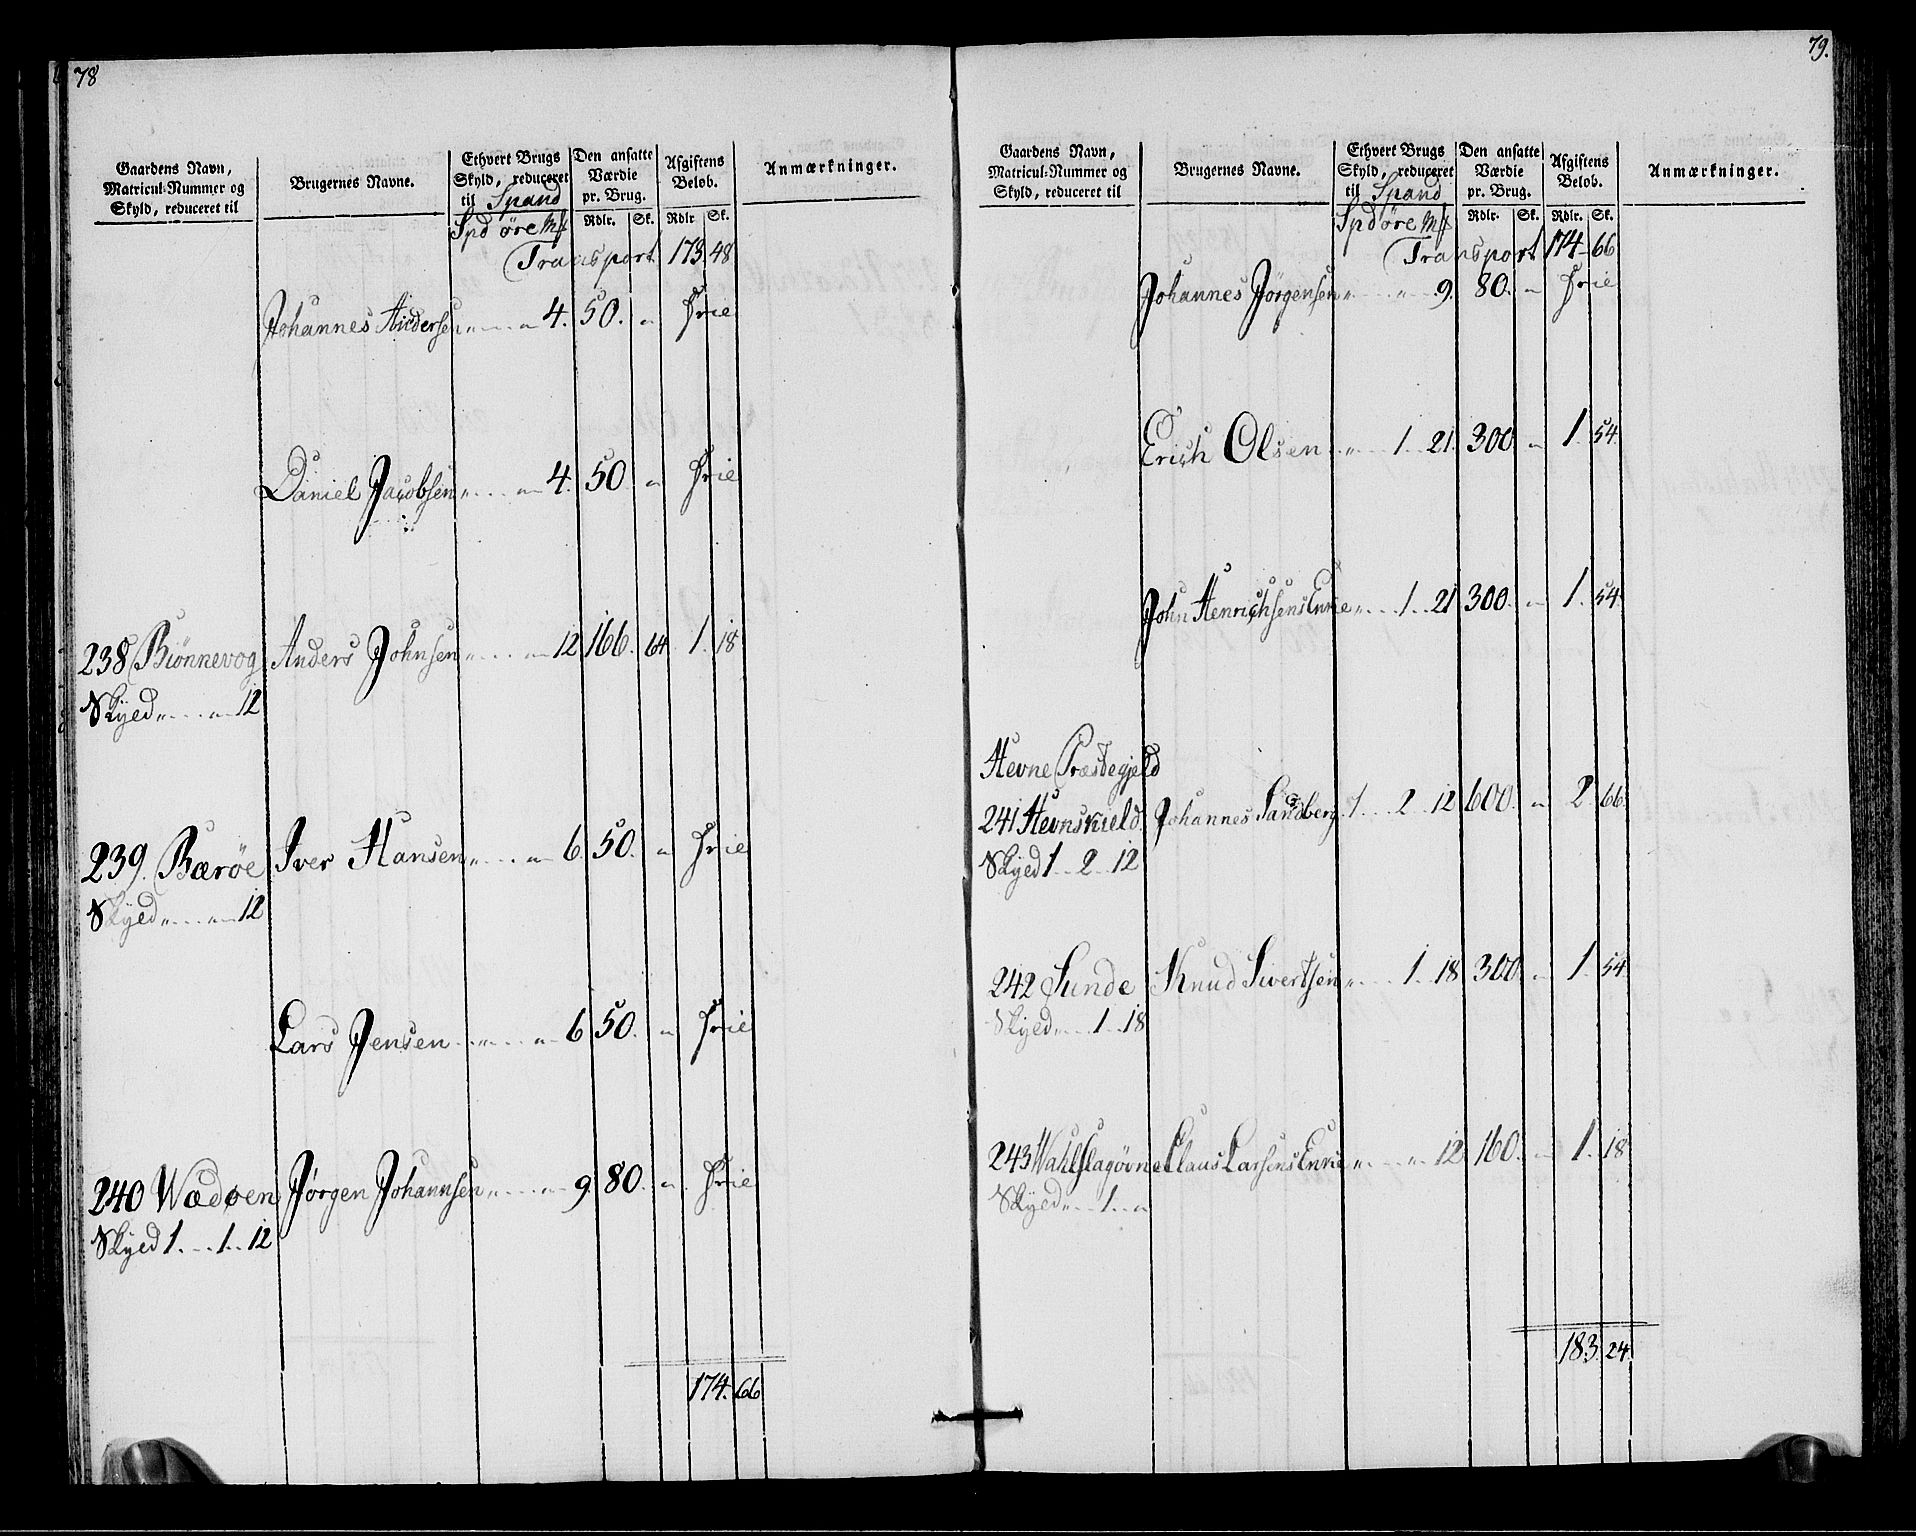 78
Gaardens Navn, Matricul-Nummer og Skyld, reduceret til | Brugernes Navne. | Ethvert Brugs Skyld, reduceret til Spand | Den ansatte Værdie pr. Brug. | Afgiftens Beløb. | Anmærkninger.
Spd øre Mk | Rdlr. | Sk. | Rdlr | Sk.
Transport 173. 48
Johannes Andersen „ .... „ 4. 50. „ Frie
Daniel Jacobsen „ .... „ 4. 50 „ Frie
238 Biønnevog Anders Johnsen „ .... „ 12 166. 64. 1. 18
Skyld „ .... „ 12
239. Bærøe Iver Hansen „ .... „ 6. 50. „ Frie
Skyld „ .... „ 12
Lars Jensen „ .... „ 6 50. „ Frie
240 Wædøen Jørgen Johannsen „ .... „ 9. 80. „ Frie
Skyld 1. ... 1.. 12
174. 66
79.
Gaardens Navn, Matricul-Nummer og Skyld, reduceret til | Brugernes Navne. | Ethvert Brugs Skyld, reduceret til Spand | Den ansatte Værdie pr. Brug. | Afgiftens Beløb. | Anmærkninger.
Spd øre Mk | Rdlr. | Sk. | Rdlr. | Sk.
Transport 174 66
Johannes Jørgensen „ .... „ 9. 80. „ Frie
Erich Olsen „ 1 .. 21. 300. „ 1. 54.
John Henrichsens Enke „ ... 1 .. 21 300. „ 1. 54
Hevne Præstegjeld
241 Hevnskield Johannes Sandberg. 1 ... 2 .. 12 600. „ 2. 66.
Skyld 1 ... 2 ... 12
242 Sunde Knud Sivertsen „ .... 1. 18 300. „ 1. 54
Skyld „ ... 1 .. 18
243 Wahlslagøvne Claus Larsens Enke „ .... „ 12 160. „ 1. 18
Skyld „ ... 1 .. „
183. 24.